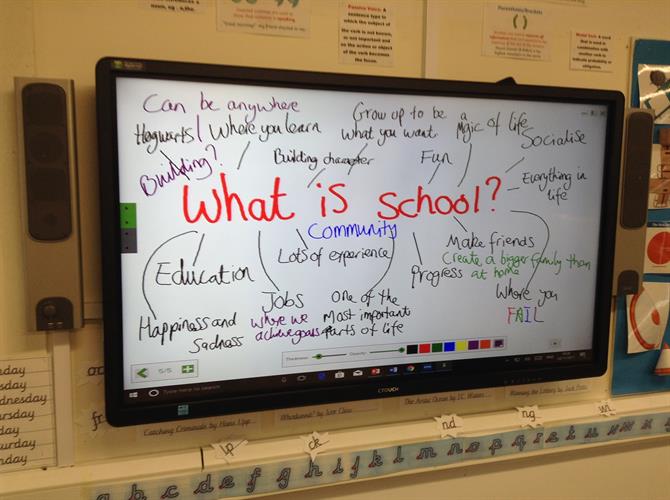 Passive Voice: A
sentence type in
which the subject of
the verb is not known,
is not important and
so the action or object
of the verb becomes
the focus.
Parenthesis/Brackets
Modal Verb: A word
that is used in
combination with
another verb to
indicate probability or
obligation.
Can be anywhere
Hogwarts/
Where you learn
Grow up to be
what you want
a
Magic of life
Socialise
Building?
Building character
Fun
Everything in
life
What is school?
Community
Education
Lots of experience
Progress
Make friends
Create a bigger family than
at home
Jobs
One of the
Most important
Parts of life
Where you
FAIL
Happiness and
Sadness
where we
achieve goals
5/5
Thickness:
Opacity:
Type here to search
CTOUCH
Catching Criminals by Hans Upp
Whodunnit? by Ivor Clew
The Arctic Ocean by I.C. Waters
Winning the Lottery by Jack Potts
nd
ng
ck
a b c d e f g h i j k l m n o p q r s t u